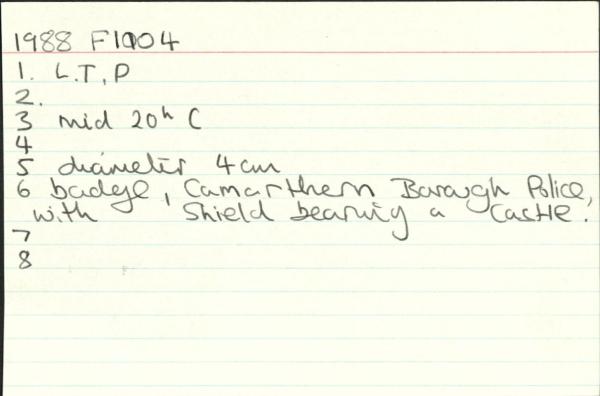 1988 F1004
1. L.T, P
2.
3 mid 20h C
4
5 diameter 4cm
6 badge, Camarthern Borough Police,
with shield bearing a Castle.
7
8